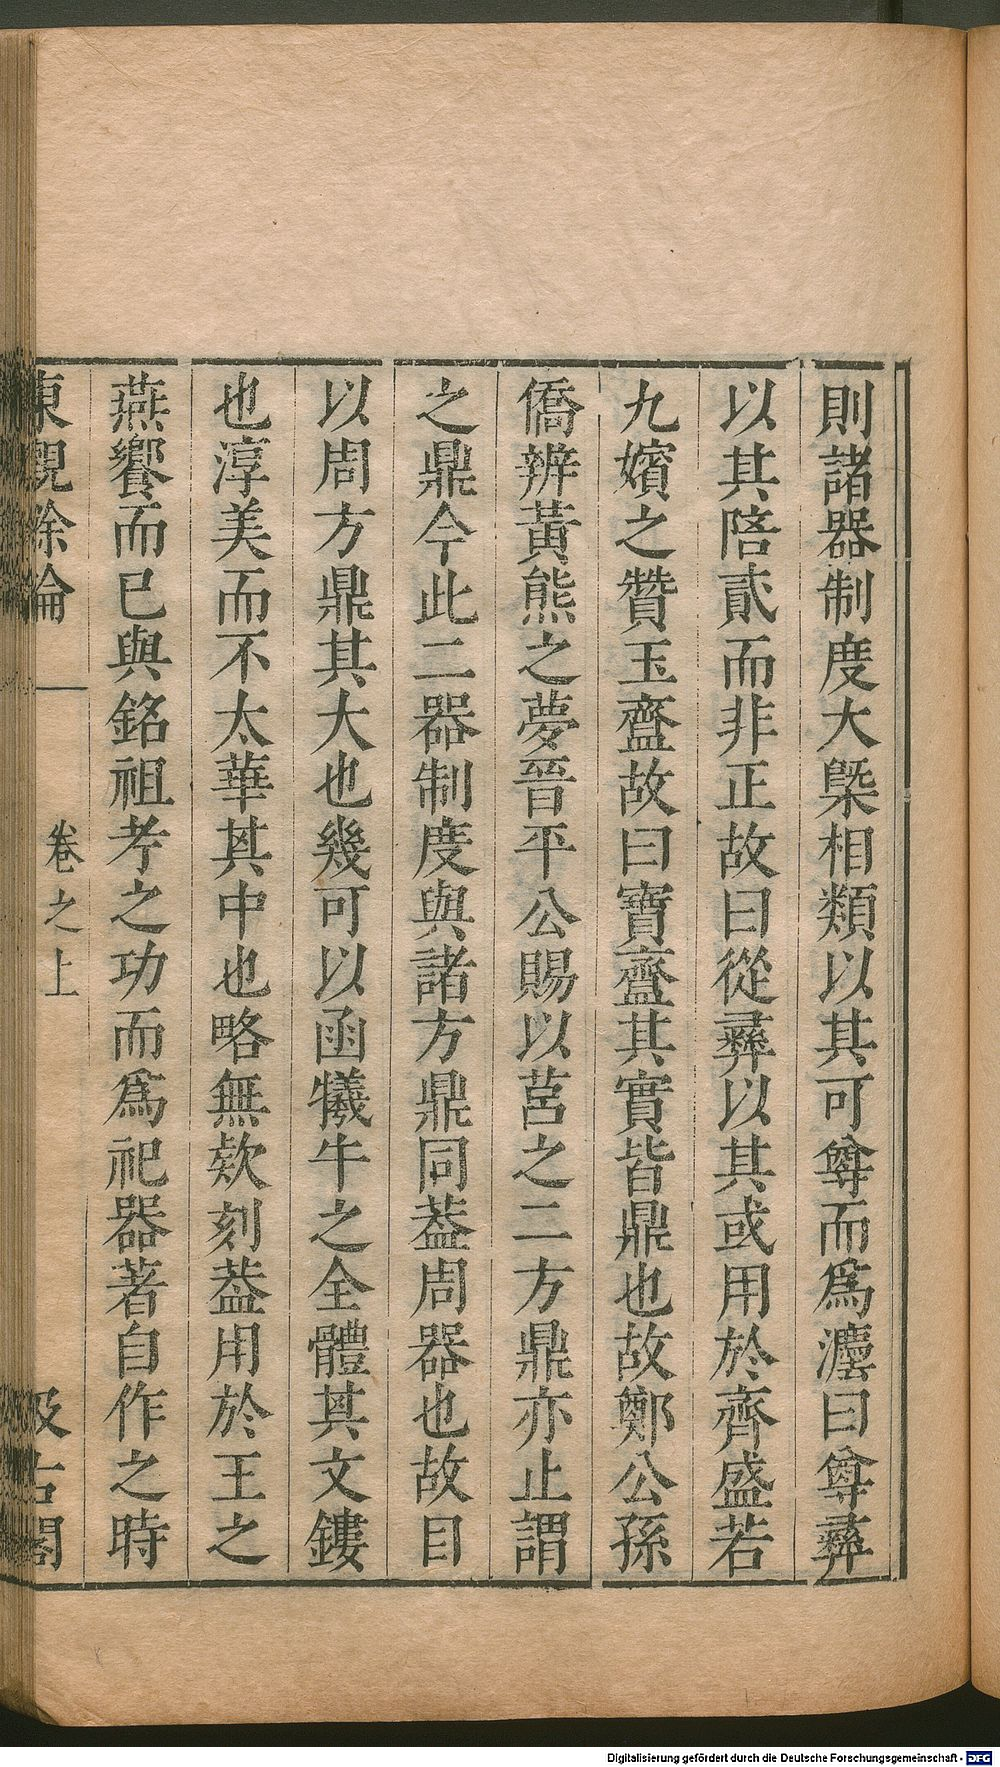 則諸器制度大槩相類以其可尊而爲灋曰尊彝
以其陪貳而非正故曰從彝以其或用於齊盛若
九嬪之贊玉齍故曰寶齍其實皆鼎也故鄭公孫
僑辨黃熊之夢晉平公賜以莒之二方鼎亦止謂
之鼎今此二器制度與諸方鼎同葢周器也故目
以周方鼎其大也幾可以函犧牛之全體其文鏤
也淳美而不太華其中也略無欵刻葢用於王之
燕饗而已與銘祖考之功而爲祀器著自作之時
東觀餘論 卷之上 汲古閣
Digitalisierung gefördert durch die Deutsche Forschungsgemeinschaft - DFG